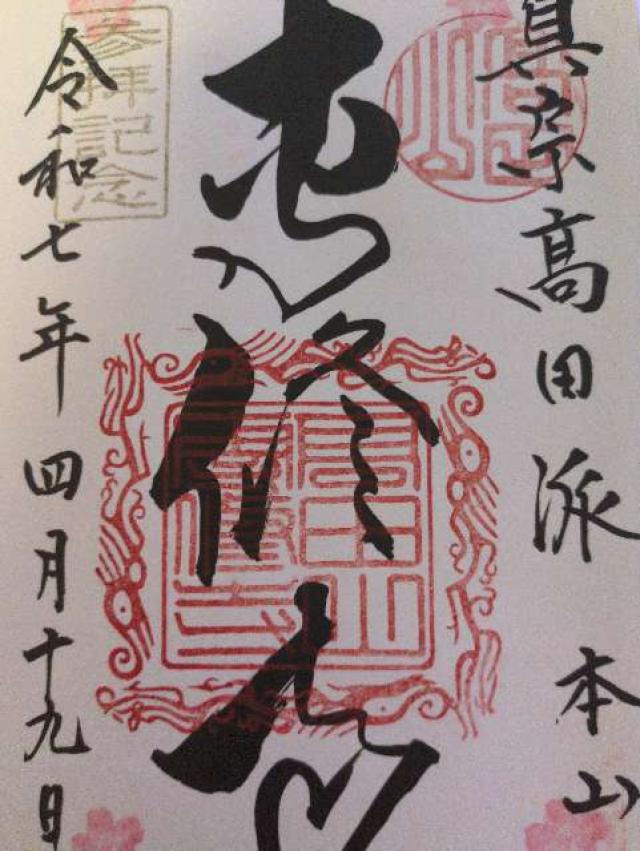 真宗高田派 本山
専修
高田山
専修寺
令和七年四月十九日
参拝記念